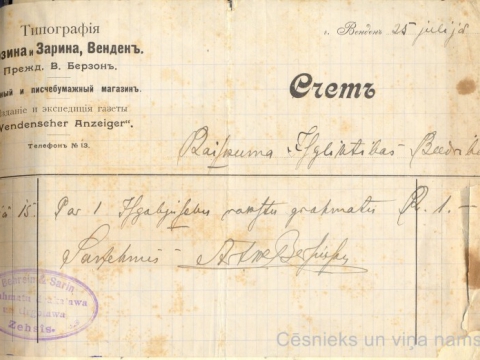 Типографія
зина и Зарина, Венденъ.
Прежд. В. Берзонъ.
ный и писчебумажный магазинъ.
Изданіе и экспедиція газеты
"Wendenscher Anzeiger".
Телефонъ № 13.
г. Венденъ 25 julijā
Счетъ
Raiskuma Izglītības Beedrība
15. Par 1 rakstu grahmatu Rb. 1.—
Saņehmis
Behrsiņ & Sariņ
Zehsis.
Cēsnieks un viņa nams